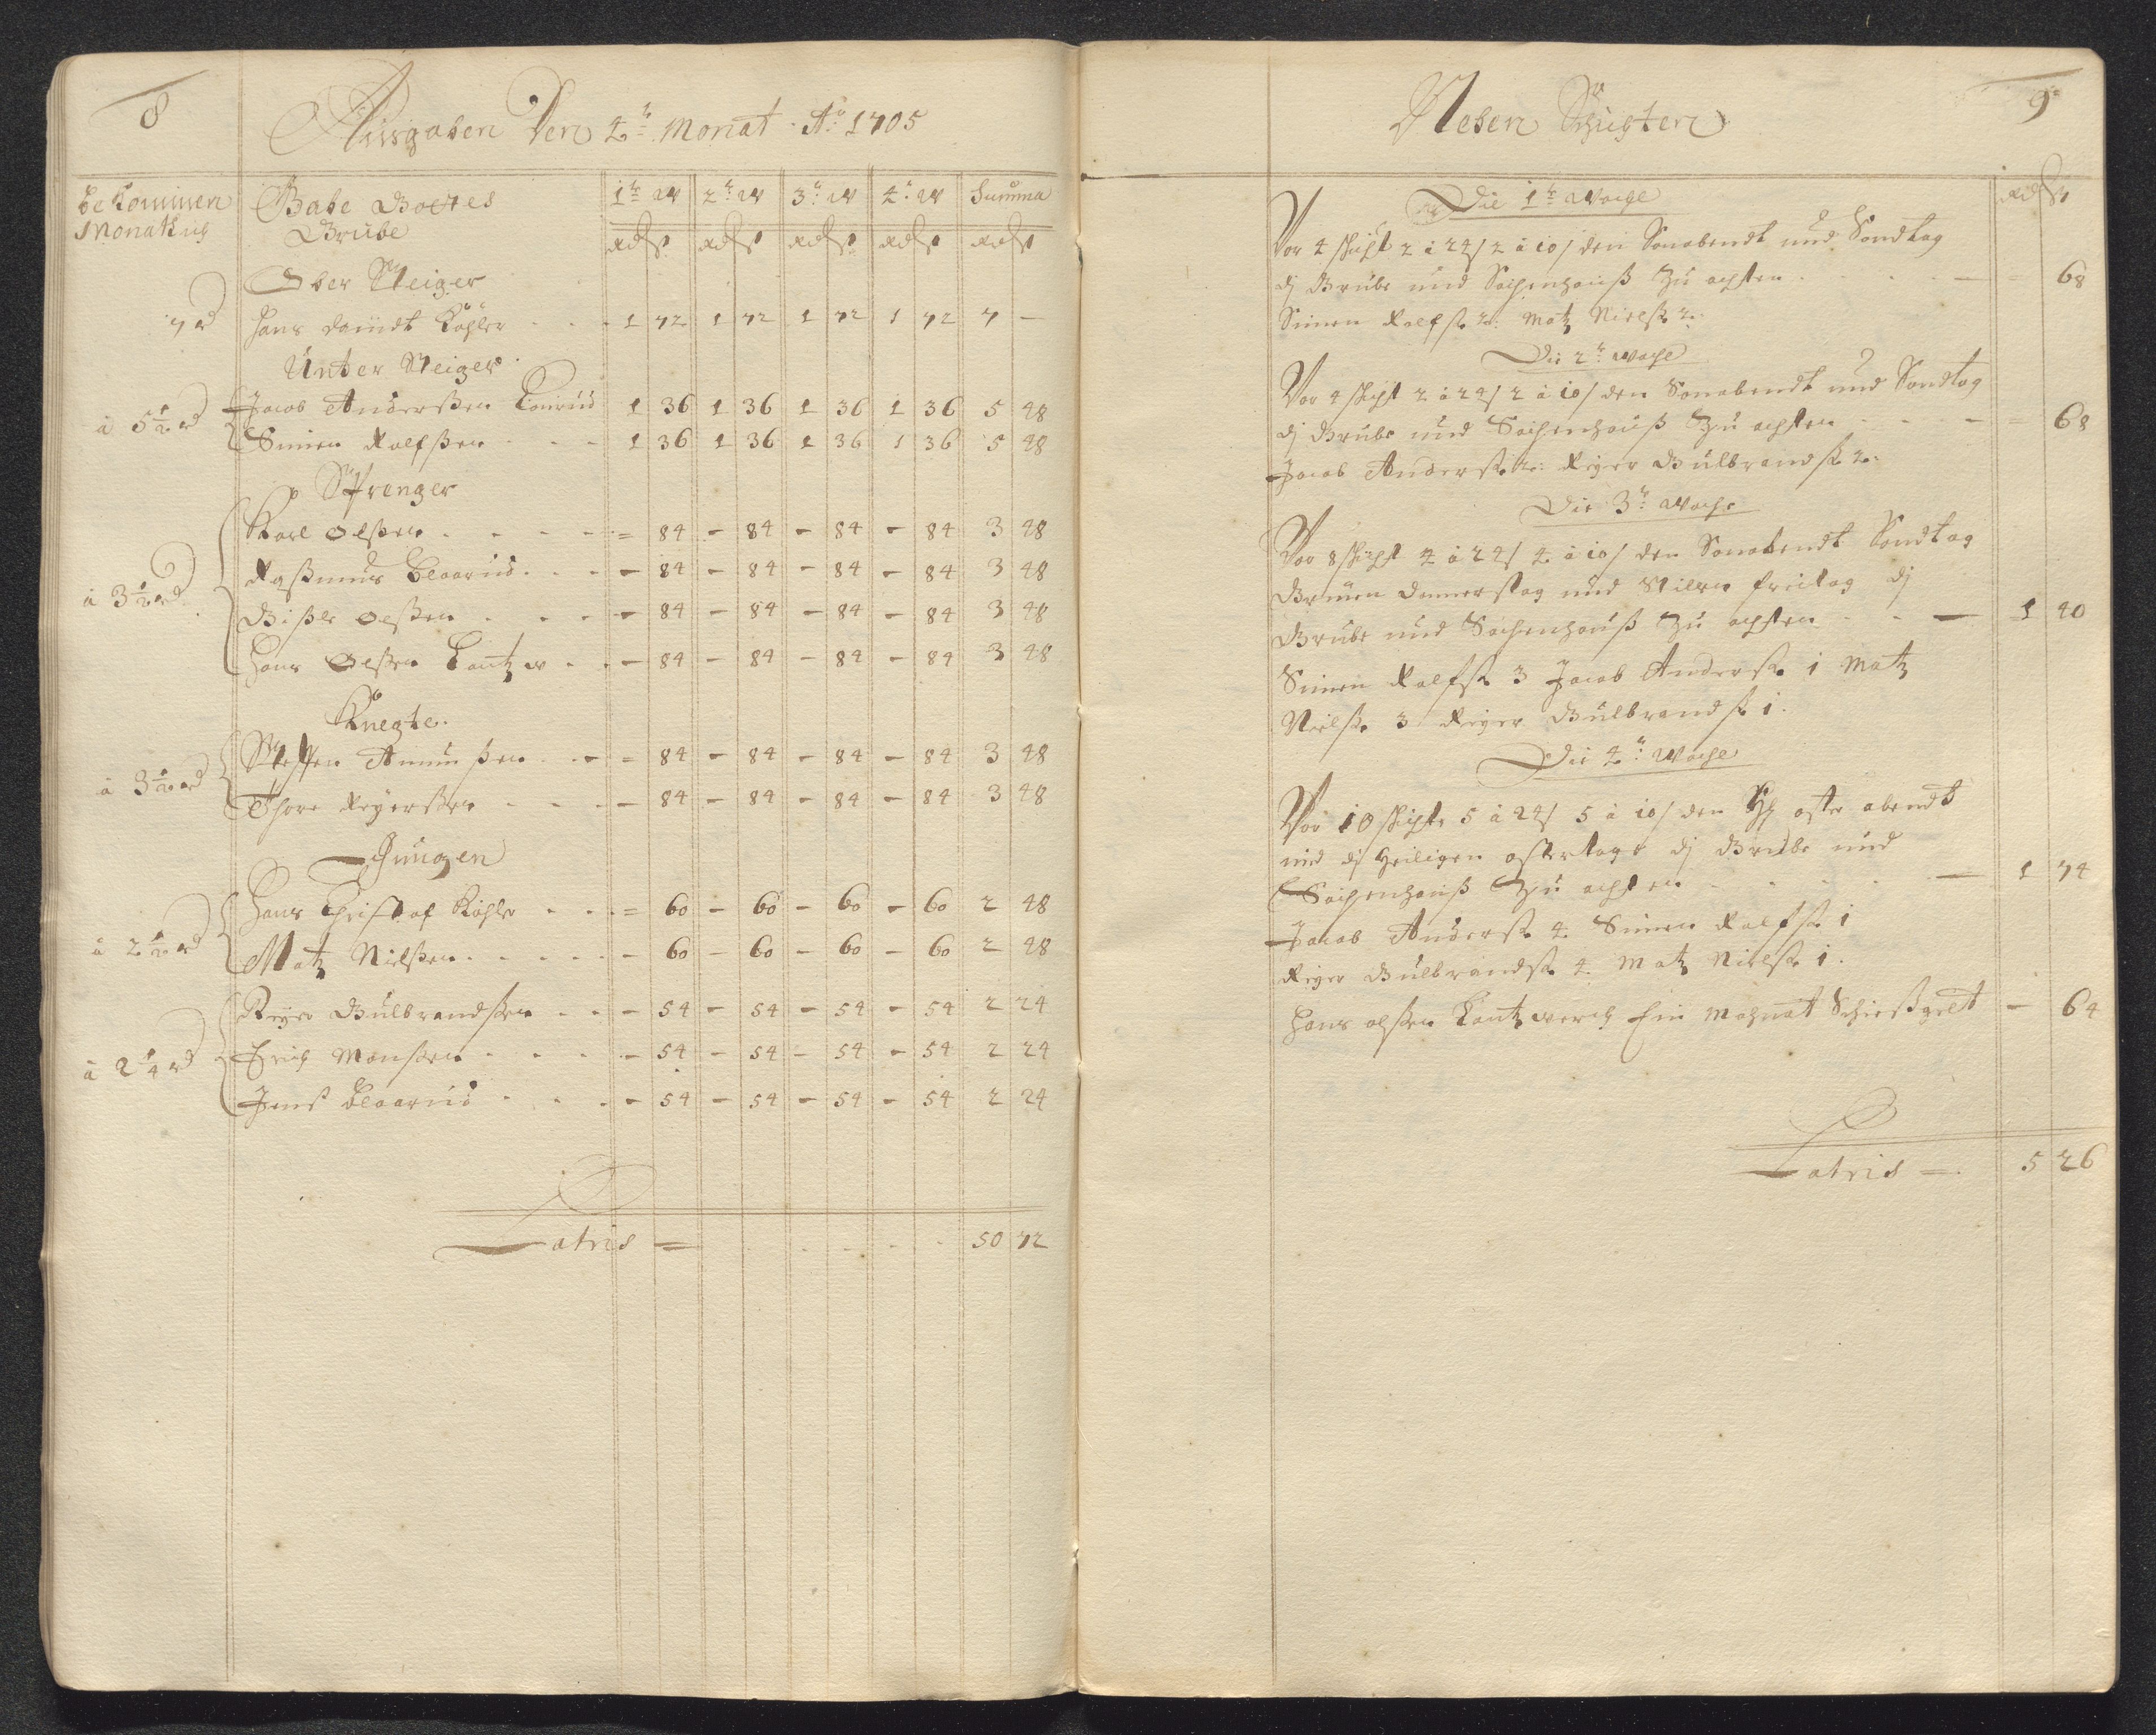 8
Ausgaben Den 4tr Monat Ao 1705
bekommen Monatlich
Gabe Gottes Grube
1te W 2te W 3te W 4te W Summa
Rd ß Rd ß Rd ß Rd ß Rd ß
Ober Steiger
7 Rd Hans Davidt Köhler - - - 1 72 1 72 1 72 1 72 7 —
Unter Steiger
à 5½ Rd Jacob Anderßen 1 36 1 36 1 36 1 36 5 48
Simen Rolfßen - - - 1 36 1 36 1 36 1 36 5 48
Sprenger
à 3½ Rd Karl Olßen - - - - = 84 - 84 - 84 - 84 3 48
Raßmus Blaarud - - - 84 - 84 - 84 - 84 3 48
Gißle Olßen - - - - 84 - 84 - 84 - 84 3 48
Hans Olßen Lantz w - - - 84 - 84 - 84 - 84 3 48
Knegte
à 3½ Rd Steffen Amunßen - - = 84 - 84 - 84 - 84 3 48
Thore Reyerßen - - - - 84 - 84 - 84 - 84 3 48
Jungen
à 2½ Rd Hans Christof Köhler - - = 60 - 60 - 60 - 60 2 48
Matz Nielßen - - - - - 60 - 60 - 60 - 60 2 48
à 2¼ Rd Reyer Gulbrandßen - - - 54 - 54 - 54 - 54 2 24
Erich Monßen - - - - 54 - 54 - 54 - 54 2 24
Jens Blaarud - - - - 54 - 54 - 54 - 54 2 24
Latris = - - - - - 50 72
9
Neben Schichten
Rd ß
Die 1te Woche
Vor 4 schicht 2 à 24/ 2 à 10/ den Sonabendt und Sondtag
dj Grube und Zachenhauß Zu achten - - - - 68
Simen Rolfß. 2. Matz Nielß. 2.
Die 2te Woche
Vor 4 schicht 2 à 24/ 2 à 10/ den Sonabendt und Sondtag
dj Grube und Zachenhauß Zu achten - - - = 68
Jacob Anderß. 2. Reyer Gulbrandß. 2.
Die 3te Woche
Vor 8 schicht 4 à 24/ 4 à 10/ den Sonabendt Sondtag
Grünen Donnerstag und Stillen freitag dj
Grube und Zachenhauß Zu achten - - — =1 40
Simen Rolfß. 3 Jacob Anderß. 1 Matz
Nielß. 3 Reyer Gulbrandß. 1.
Die 4te Woche
Vor 10 schichte 5 à 24/ 5 à 10/ den Hl oster abendt
und dj Heiligen ostertage dj Grube und
Zachenhauß Zu achten - - - — 1 74
Jacob Anderß. 4 Simen Rolfß. 1
Reyer Gulbrandß. 4 Matz Nielß. 1.
Hans olßen Lantz werch Ein Mohnat Schießgelt — 64
Latris = 5 26